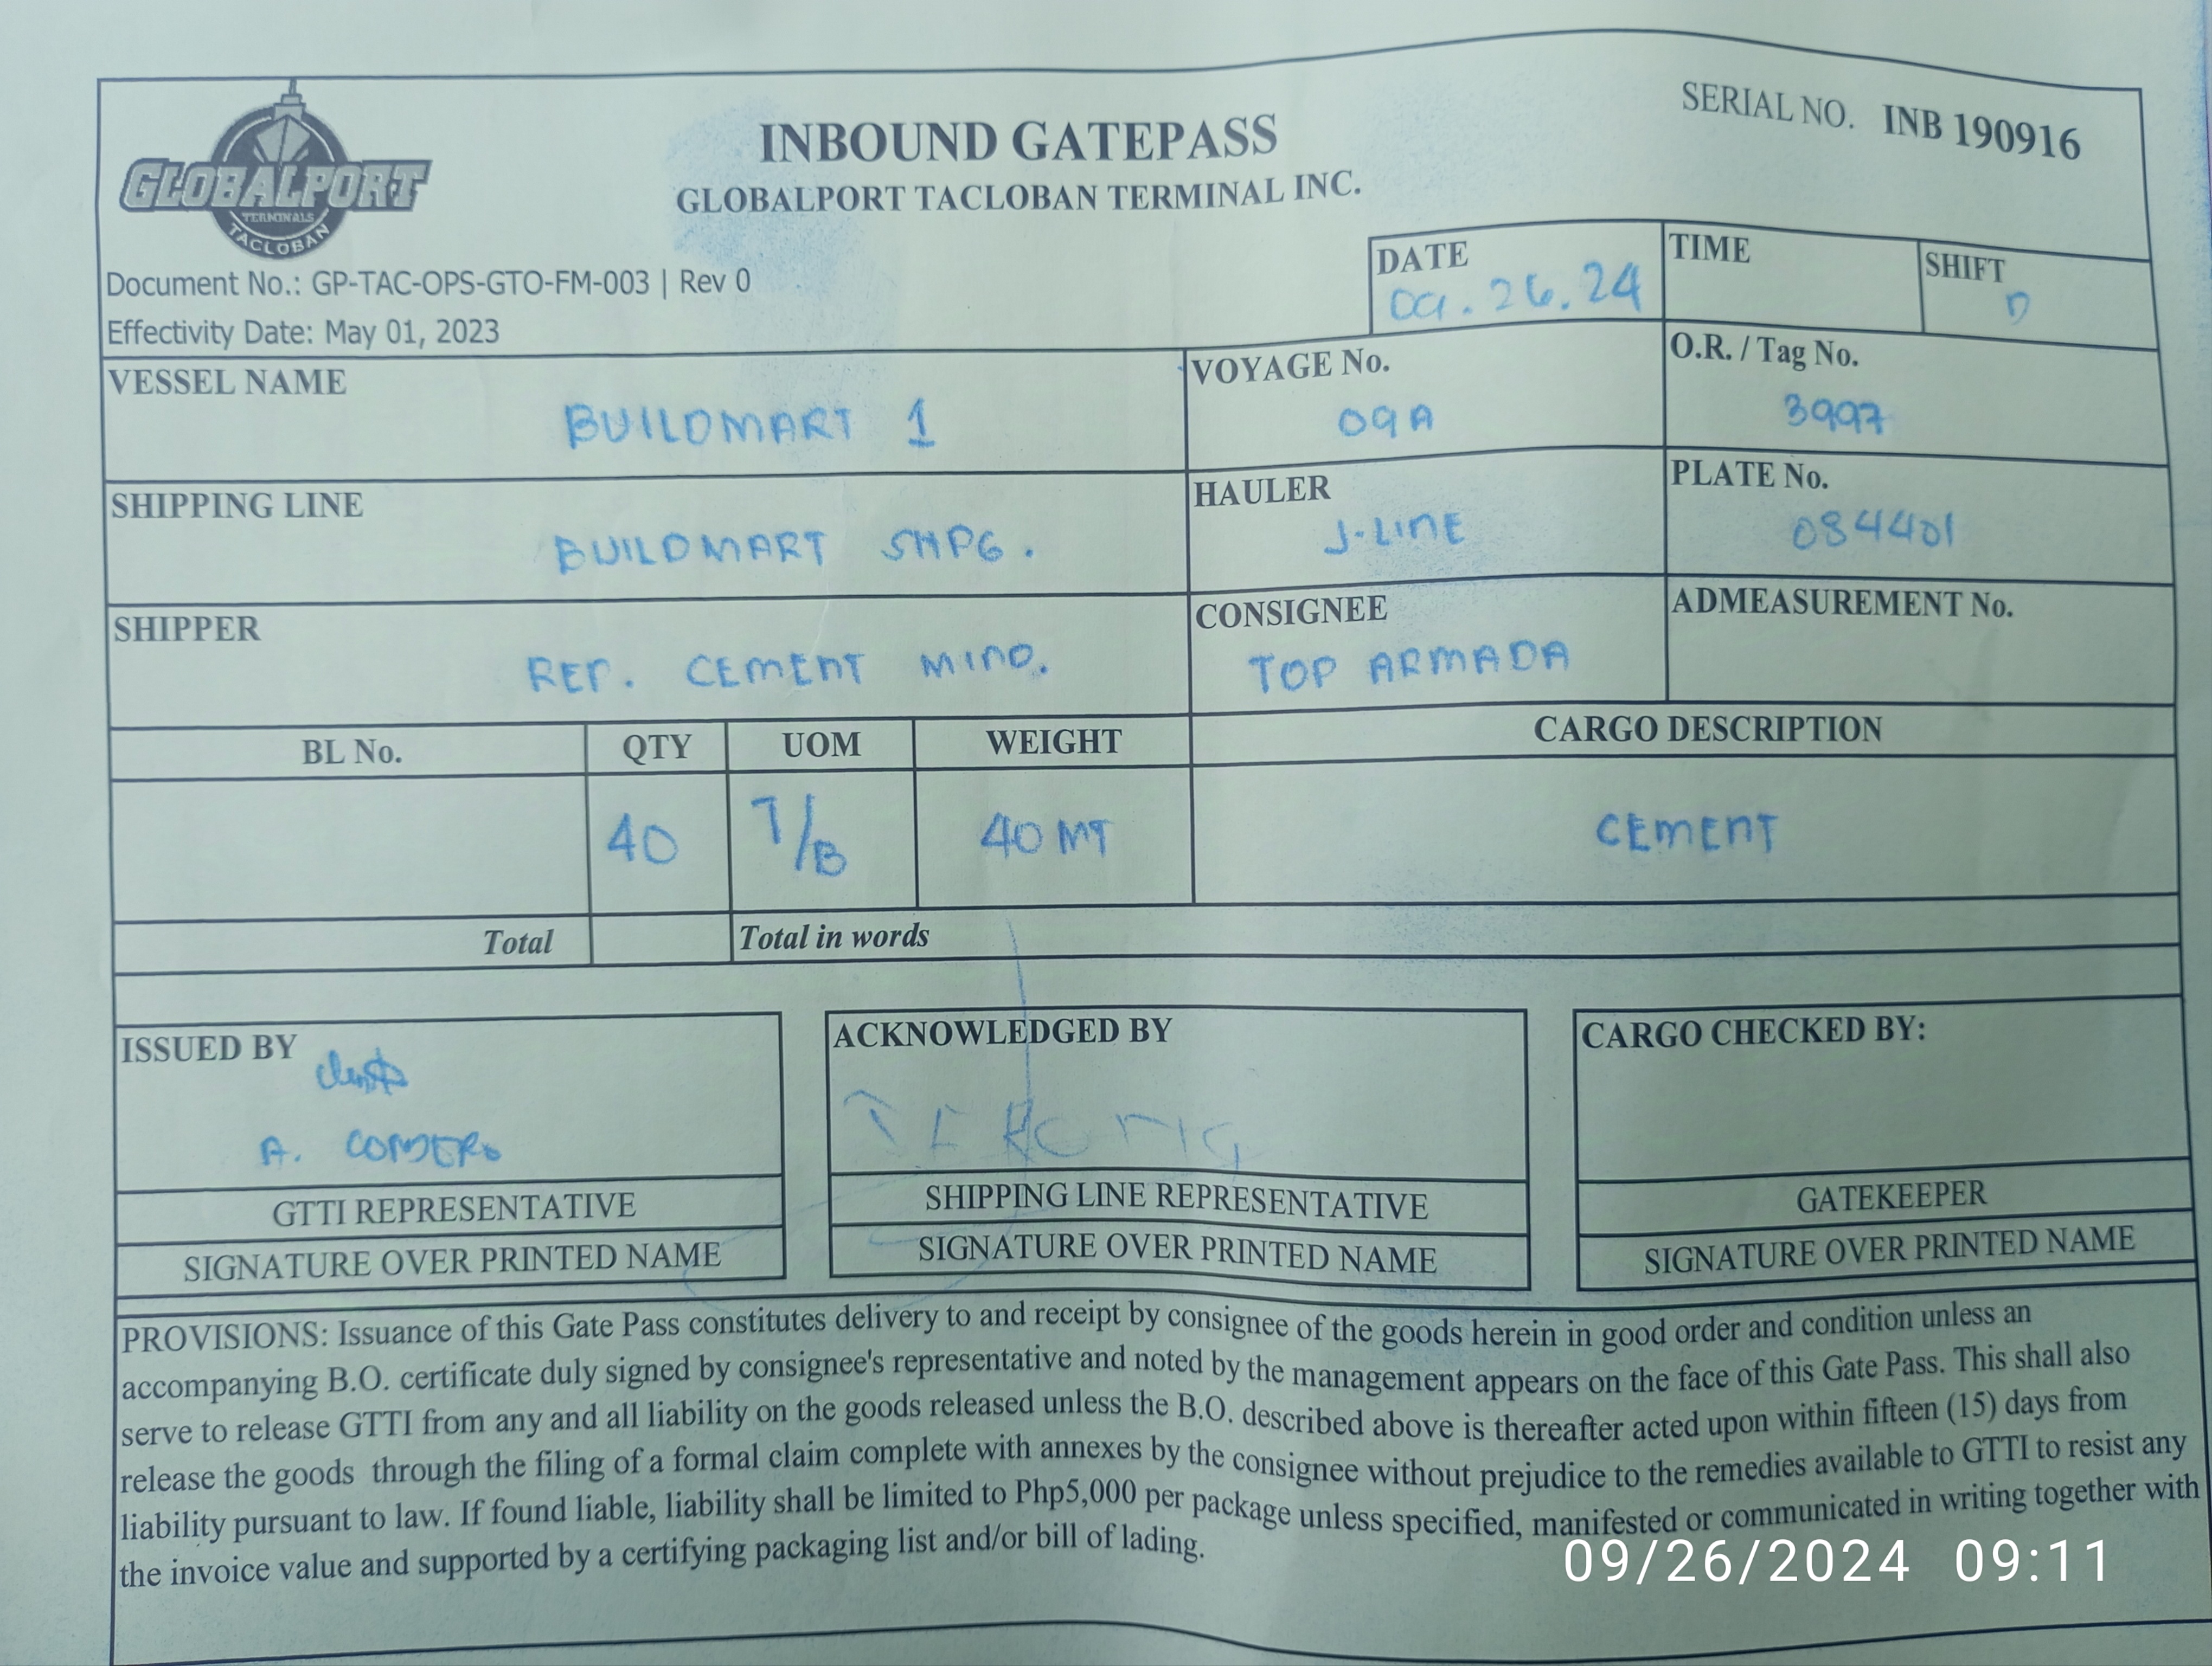 GLOBALPORT
TERMINALS
TACLOBAN
INBOUND GATEPASS
GLOBALPORT TACLOBAN TERMINAL INC.
SERIAL NO. INB 190916
Document No.: GP-TAC-OPS-GTO-FM-003 | Rev 0
Effectivity Date: May 01, 2023
DATE
26.24
TIME
SHIFT
D
VESSEL NAME
BUILDMART 1
VOYAGE No.
09A
O.R. / Tag No.
3997
SHIPPING LINE
BUILDMART SHPG.
HAULER
J-LINE
PLATE No.
084401
SHIPPER
REP. CEMENT MIND.
CONSIGNEE
TOP ARMADA
ADMEASUREMENT No.
BL No. QTY UOM WEIGHT CARGO DESCRIPTION
40 T/B 40 MT CEMENT
Total Total in words
ISSUED BY
A.
GTTI REPRESENTATIVE
SIGNATURE OVER PRINTED NAME
ACKNOWLEDGED BY
SHIPPING LINE REPRESENTATIVE
SIGNATURE OVER PRINTED NAME
CARGO CHECKED BY:
GATEKEEPER
SIGNATURE OVER PRINTED NAME
PROVISIONS: Issuance of this Gate Pass constitutes delivery to and receipt by consignee of the goods herein in good order and condition unless an
accompanying B.O. certificate duly signed by consignee's representative and noted by the management appears on the face of this Gate Pass. This shall also
serve to release GTTI from any and all liability on the goods released unless the B.O. described above is thereafter acted upon within fifteen (15) days from
release the goods through the filing of a formal claim complete with annexes by the consignee without prejudice to the remedies available to GTTI to resist any
liability pursuant to law. If found liable, liability shall be limited to Php5,000 per package unless specified, manifested or communicated in writing together with
the invoice value and supported by a certifying packaging list and/or bill of lading.
09/26/2024 09:11